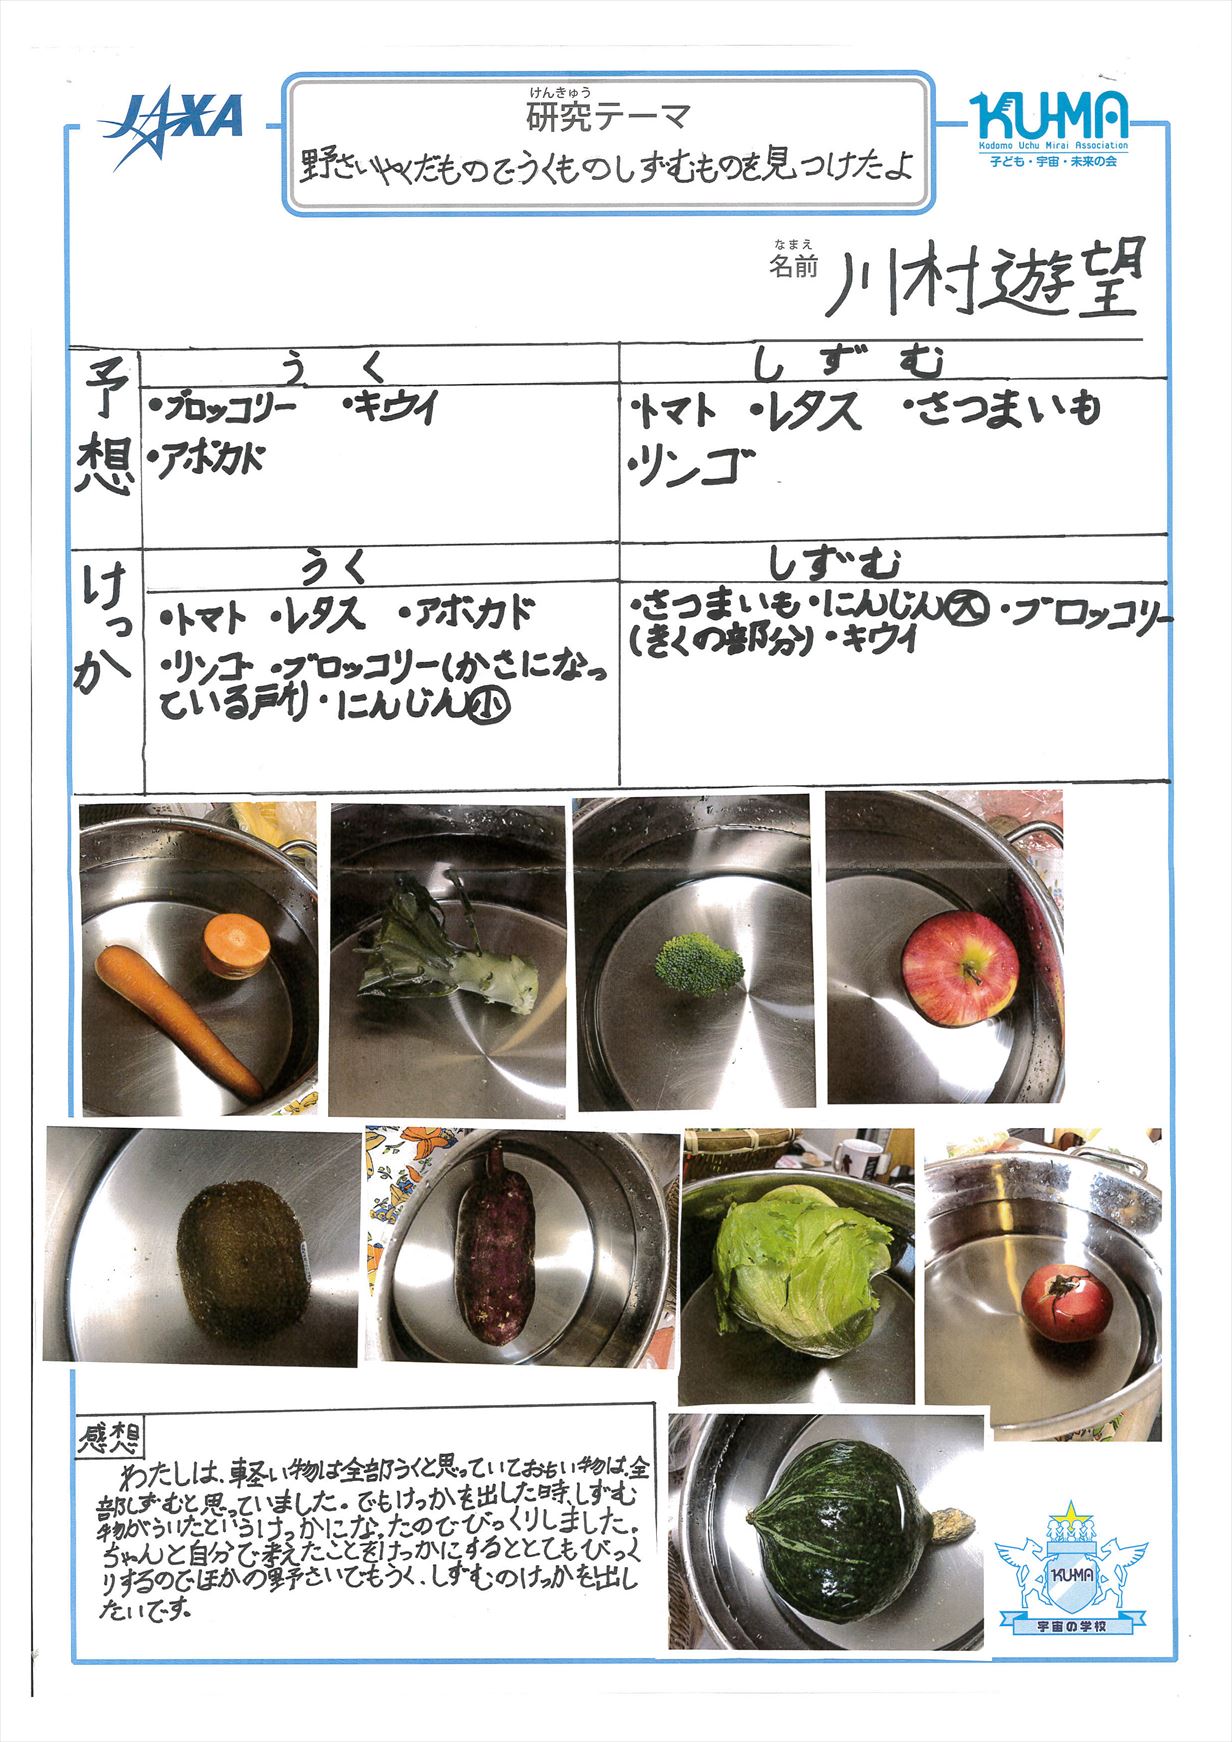 JAXA
けんきゅう
研究テーマ
野さいやくだものでうくものしずむものを見つけたよ
KU-MA
Kodomo Uchu Mirai Association
子ども・宇宙・未来の会
なまえ
名前 川村遊望
予想
うく
・ブロッコリー ・キウイ
・アボカド
しずむ
・トマト ・レタス ・さつまいも
・リンゴ
けっか
うく
・トマト ・レタス ・アボカド
・リンゴ ・ブロッコリー(かさになっ
ている所)・にんじん小
しずむ
・さつまいも・にんじん大・ブロッコリー
(きくの部分)・キウイ
感想
わたしは、軽い物は全部うくと思っていておもい物は、全
部しずむと思っていました。でもけっかを出した時、しずむ
物がういたというけっかになったのでびっくりしました。
ちゃんと自分で考えたことをけっかにするととてもびっく
りするのでほかの野さいでもうく、しずむのけっかを出し
たいです。
KU-MA
宇宙の学校